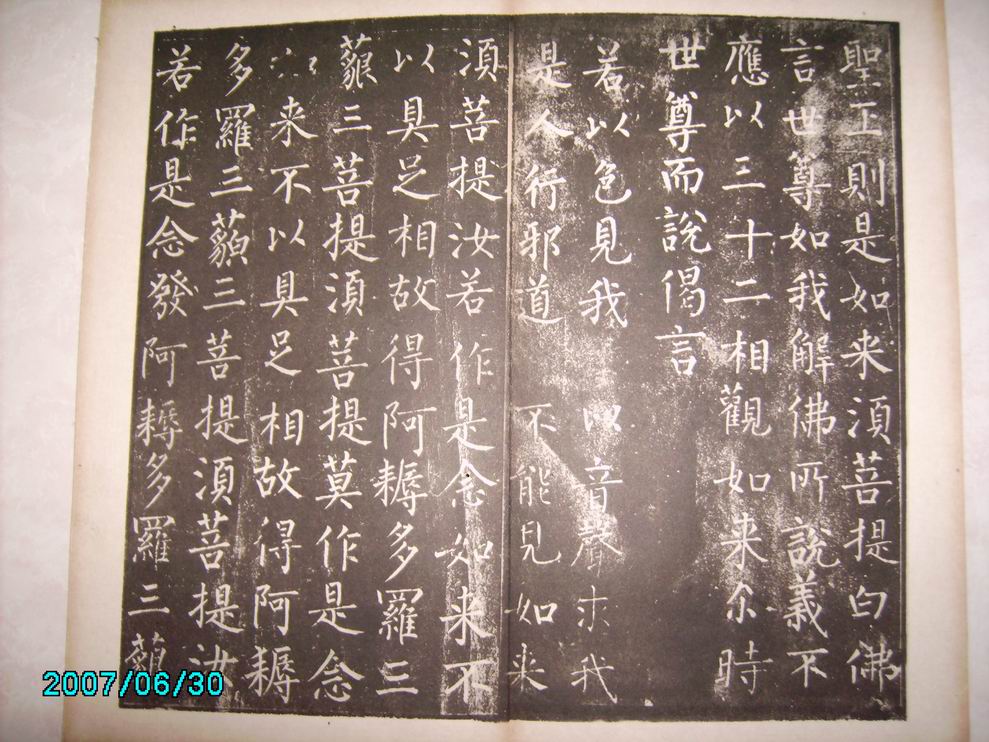 聖王則是如来須菩提白佛
言世尊如我解佛所說義不
應以三十二相觀如来尒時
世尊而說偈言
若以色見我 以音聲求我
是人行邪道 不能見如来
須菩提汝若作是念如来不
以具足相故得阿耨多羅三
藐三菩提須菩提莫作是念
如来不以具足相故得阿耨
多羅三藐三菩提須菩提汝
若作是念發阿耨多羅三藐
2007/06/30